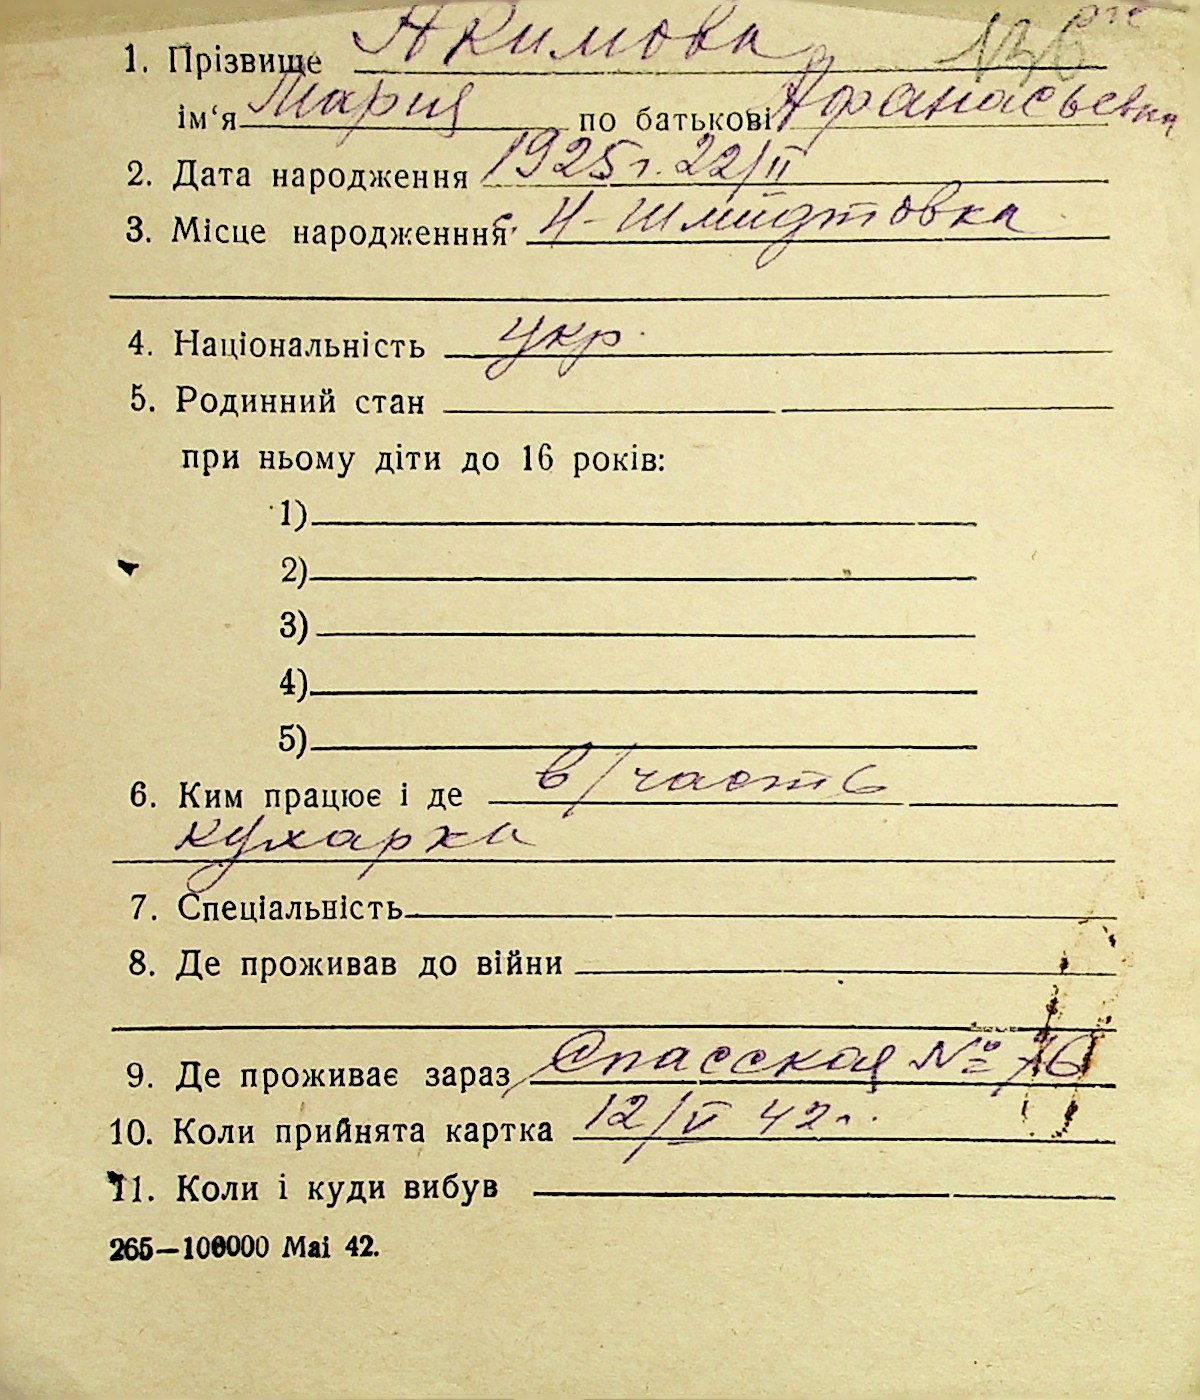 1. Прізвище Акимова 136
ім‘я Мария по батькові Афанасьевна
2. Дата народження 1925 г. 22/II
3. Місце народженння с. Н-Шмидтовка
4. Національність укр.
5. Родинний стан
при ньому діти до 16 років:
1)
2)
3)
4)
5)
6. Ким працює і де в/часть
кухарка
7. Спеціальність
8. Де проживав до війни
9. Де проживає зараз Спасская № 76
10. Коли прийнята картка 12/V 42 г.
11. Коли і куди вибув
265—100000 Mai 42.